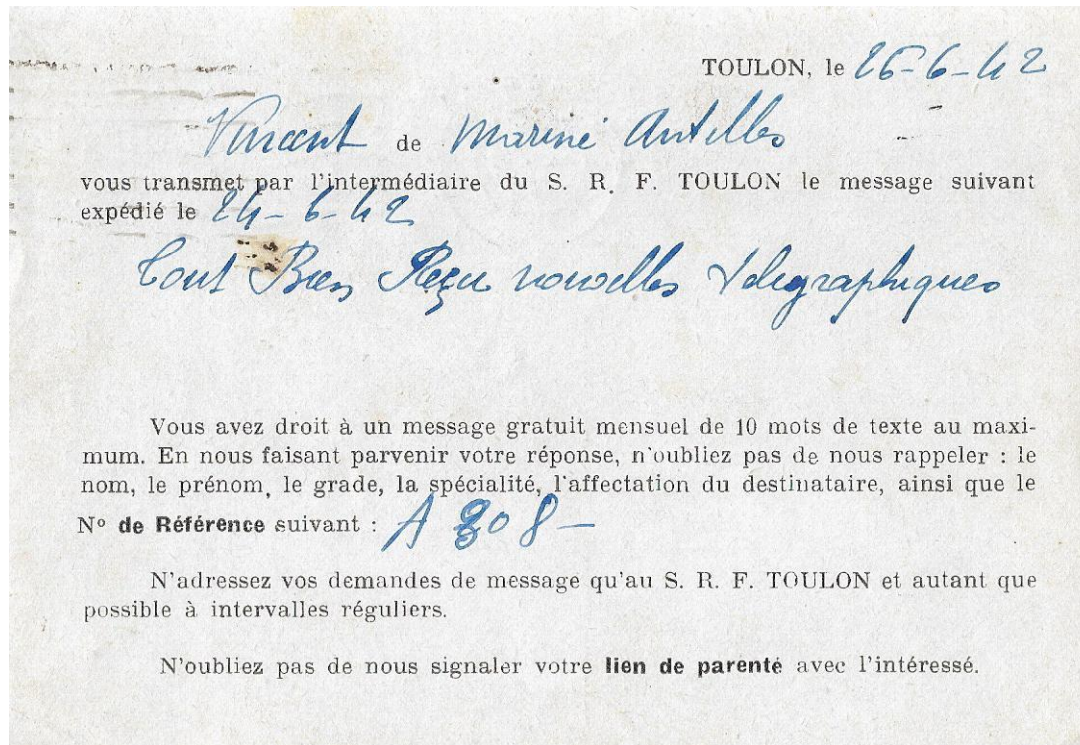 TOULON, le 26-6-42
Vincent de Marine Antilles
vous transmet par l'intermédiaire du S. R. F. TOULON le message suivant
expédié le 24-6-42
Tout Bien Reçu nouvelles télégraphiques
Vous avez droit à un message gratuit mensuel de 10 mots de texte au maxi-
mum. En nous faisant parvenir votre réponse, n'oubliez pas de nous rappeler : le
nom, le prénom, le grade, la spécialité, l'affectation du destinataire, ainsi que le
Nº de Référence suivant : A 808 —
N'adressez vos demandes de message qu'au S. R. F. TOULON et autant que
possible à intervalles réguliers.
N'oubliez pas de nous signaler votre lien de parenté avec l'intéressé.